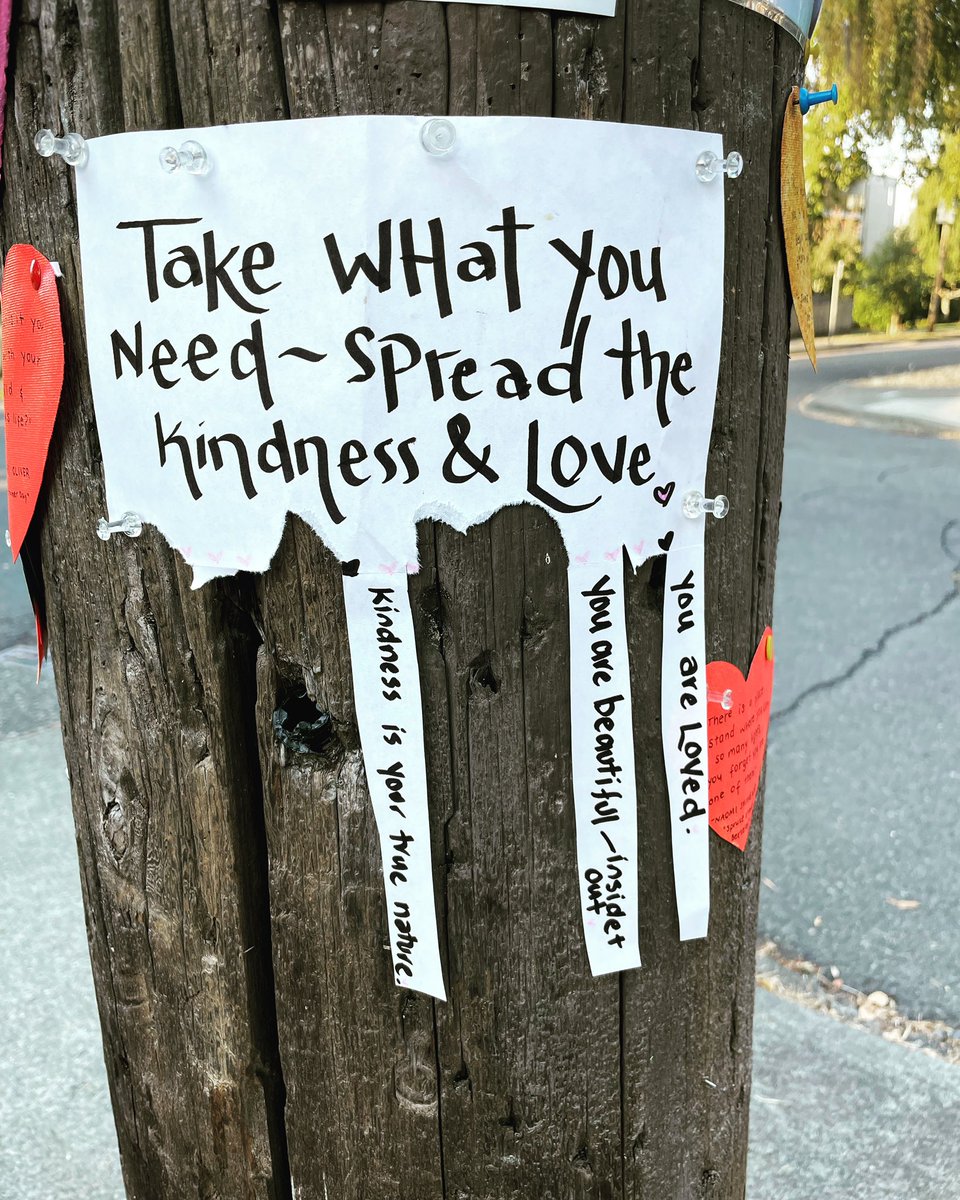 Take WHat You
Need ~ Spread the
Kindness & Love.
Kindness is your true nature.
You are beautiful ~ inside +
out
You are Loved.
There is a
stand where
so many
you forgot
one of them